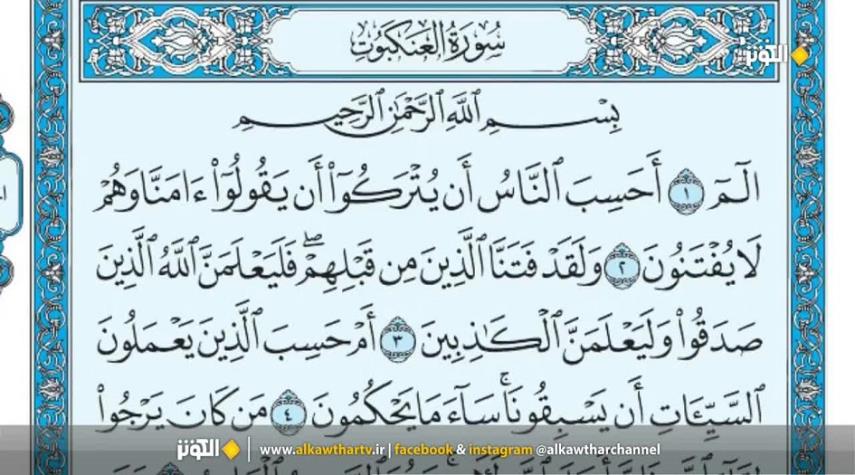 سُورَةُ الْعَنكَبُوتِ
الكوثر
بِسْمِ ٱللَّهِ ٱلرَّحْمَٰنِ ٱلرَّحِيمِ
الٓمٓ ١ أَحَسِبَ ٱلنَّاسُ أَن يُتْرَكُوٓا۟ أَن يَقُولُوٓا۟ ءَامَنَّا وَهُمْ
لَا يُفْتَنُونَ ٢ وَلَقَدْ فَتَنَّا ٱلَّذِينَ مِن قَبْلِهِمْ ۖ فَلَيَعْلَمَنَّ ٱللَّهُ ٱلَّذِينَ
صَدَقُوا۟ وَلَيَعْلَمَنَّ ٱلْكَٰذِبِينَ ٣ أَمْ حَسِبَ ٱلَّذِينَ يَعْمَلُونَ
ٱلسَّيِّـَٔاتِ أَن يَسْبِقُونَا ۚ سَآءَ مَا يَحْكُمُونَ ٤ مَن كَانَ يَرْجُوا۟
الكوثر www.alkawthartv.ir | facebook & instagram @alkawtharchannel